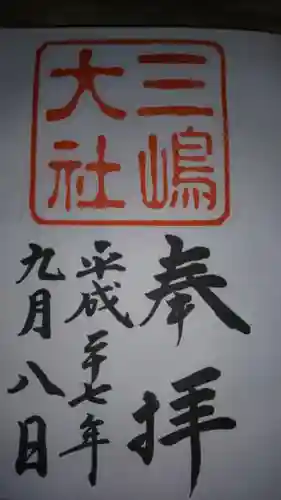 三嶋
大社
奉拝
平成二十七年
九月八日